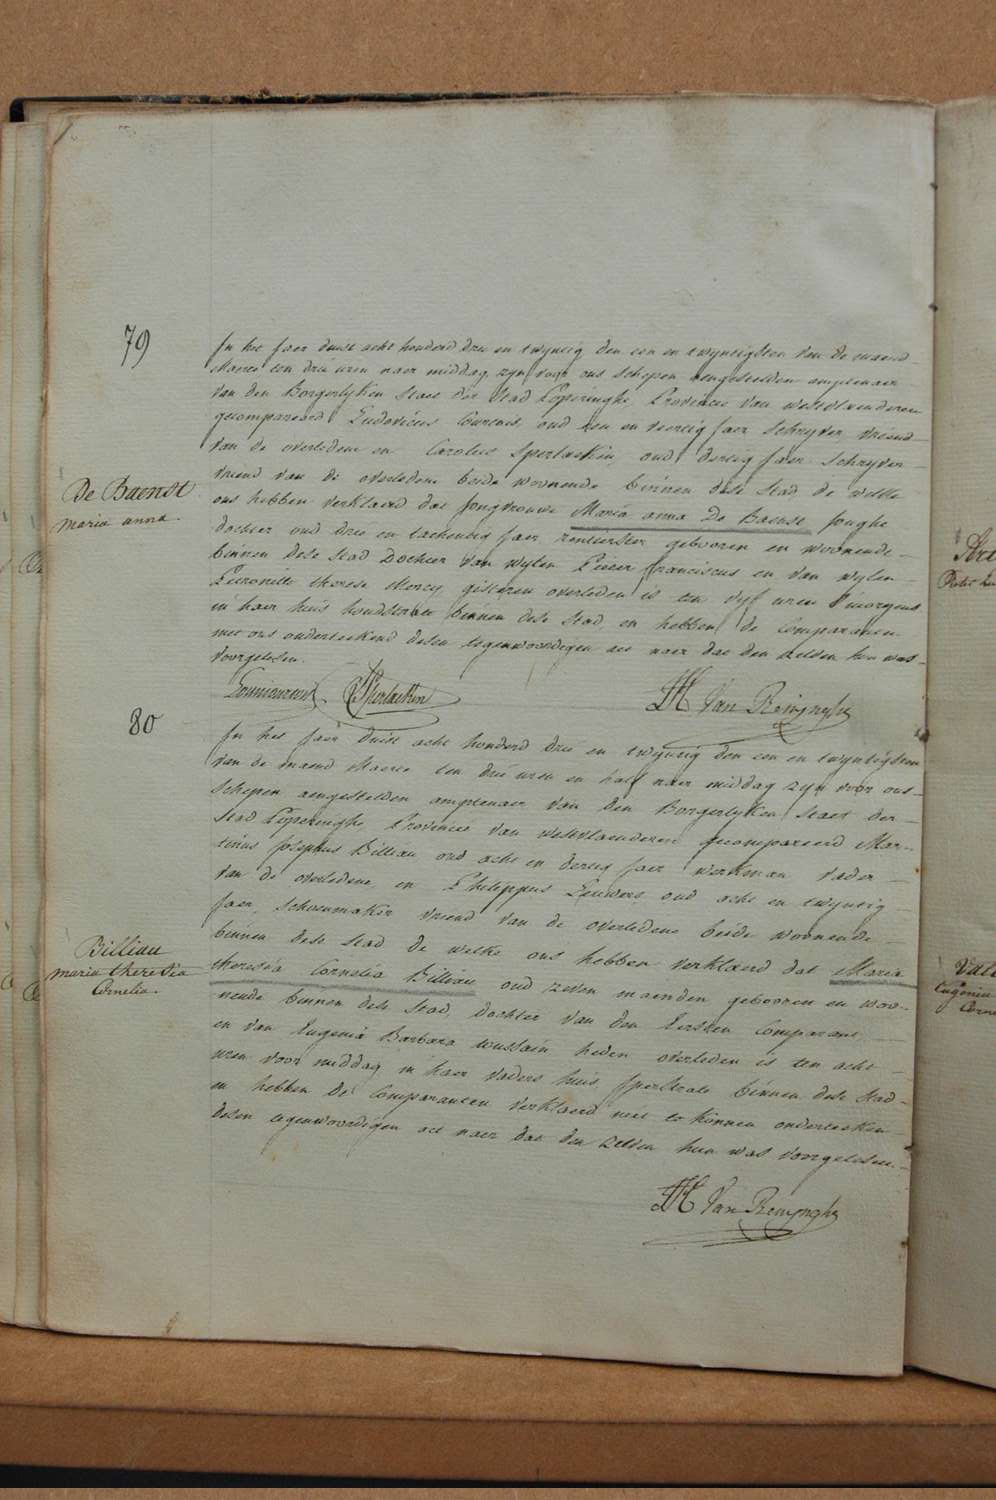 79
In het jaer duist acht honderd drie en twyntig den een en twyntigsten van de maend
Maerte ten drie uren naer middag zyn voor ons schepen aengestelden amptenaer
van den Borgerlyken Staet der Stad Poperinghe, Provincie van westvlaenderen
gecompareerd Ludovicus oud en veertig jaer schryver vriend
van de overledene en Carolus Sperlaeken, oud dertig jaer schryver
vriend van de overledene beide woonende binnen dese Stad de welke
De Baenst
maria anna
ons hebben verklaerd dat Jongvrouwe Maria anna De Baenst jonghe
dochter oud drie en tachentig jaer rentierster gebooren en woonende
binnen dese Stad Dochter van wylen Pieter franciscus en van wylen
Petronille therese Mercy gisteren overleden is ten vyf uren s'morgens
in haer huis binnen dese Stad, en hebben de Comparanten
met ons onderteekend desen tegenwoordigen act naer dat den zelden hun was
voorgelesen.
Sperlaeken Van Renynghe
80
In het jaer duist acht honderd drie en twyntig den een en twyntigsten
van de maend Maerte ten drie uren en half naer middag zyn voor ons
schepen aengestelden amptenaer van den Borgerlyken Staet der
Stad Poperinghe Provincie van westvlaenderen gecompareerd Mar-
tinus Josephus Billiau oud acht en dertig jaer werkman vader
van de overledene, en Philippus Leuwers oud acht en twyntig
jaer, schoenmaker vriend van de overledene beide woonende
Billiau
maria theresia
Cornelia.
binnen dese Stad de welke ons hebben verklaerd dat Maria
theresia Cornelia Billiau oud zeven maenden gebooren en woo-
nende binnen dese Stad, dochter van den Eersten Comparant,
en van Eugenia Barbara heden overleden is ten acht
uren voor middag in haer vaders huis, binnen dese Stad
en hebben de Comparanten verklaerd niet te konnen onderteeken
desen tegenwoordigen act naer dat den zelden hun was voorgelesen.
Van Renynghe